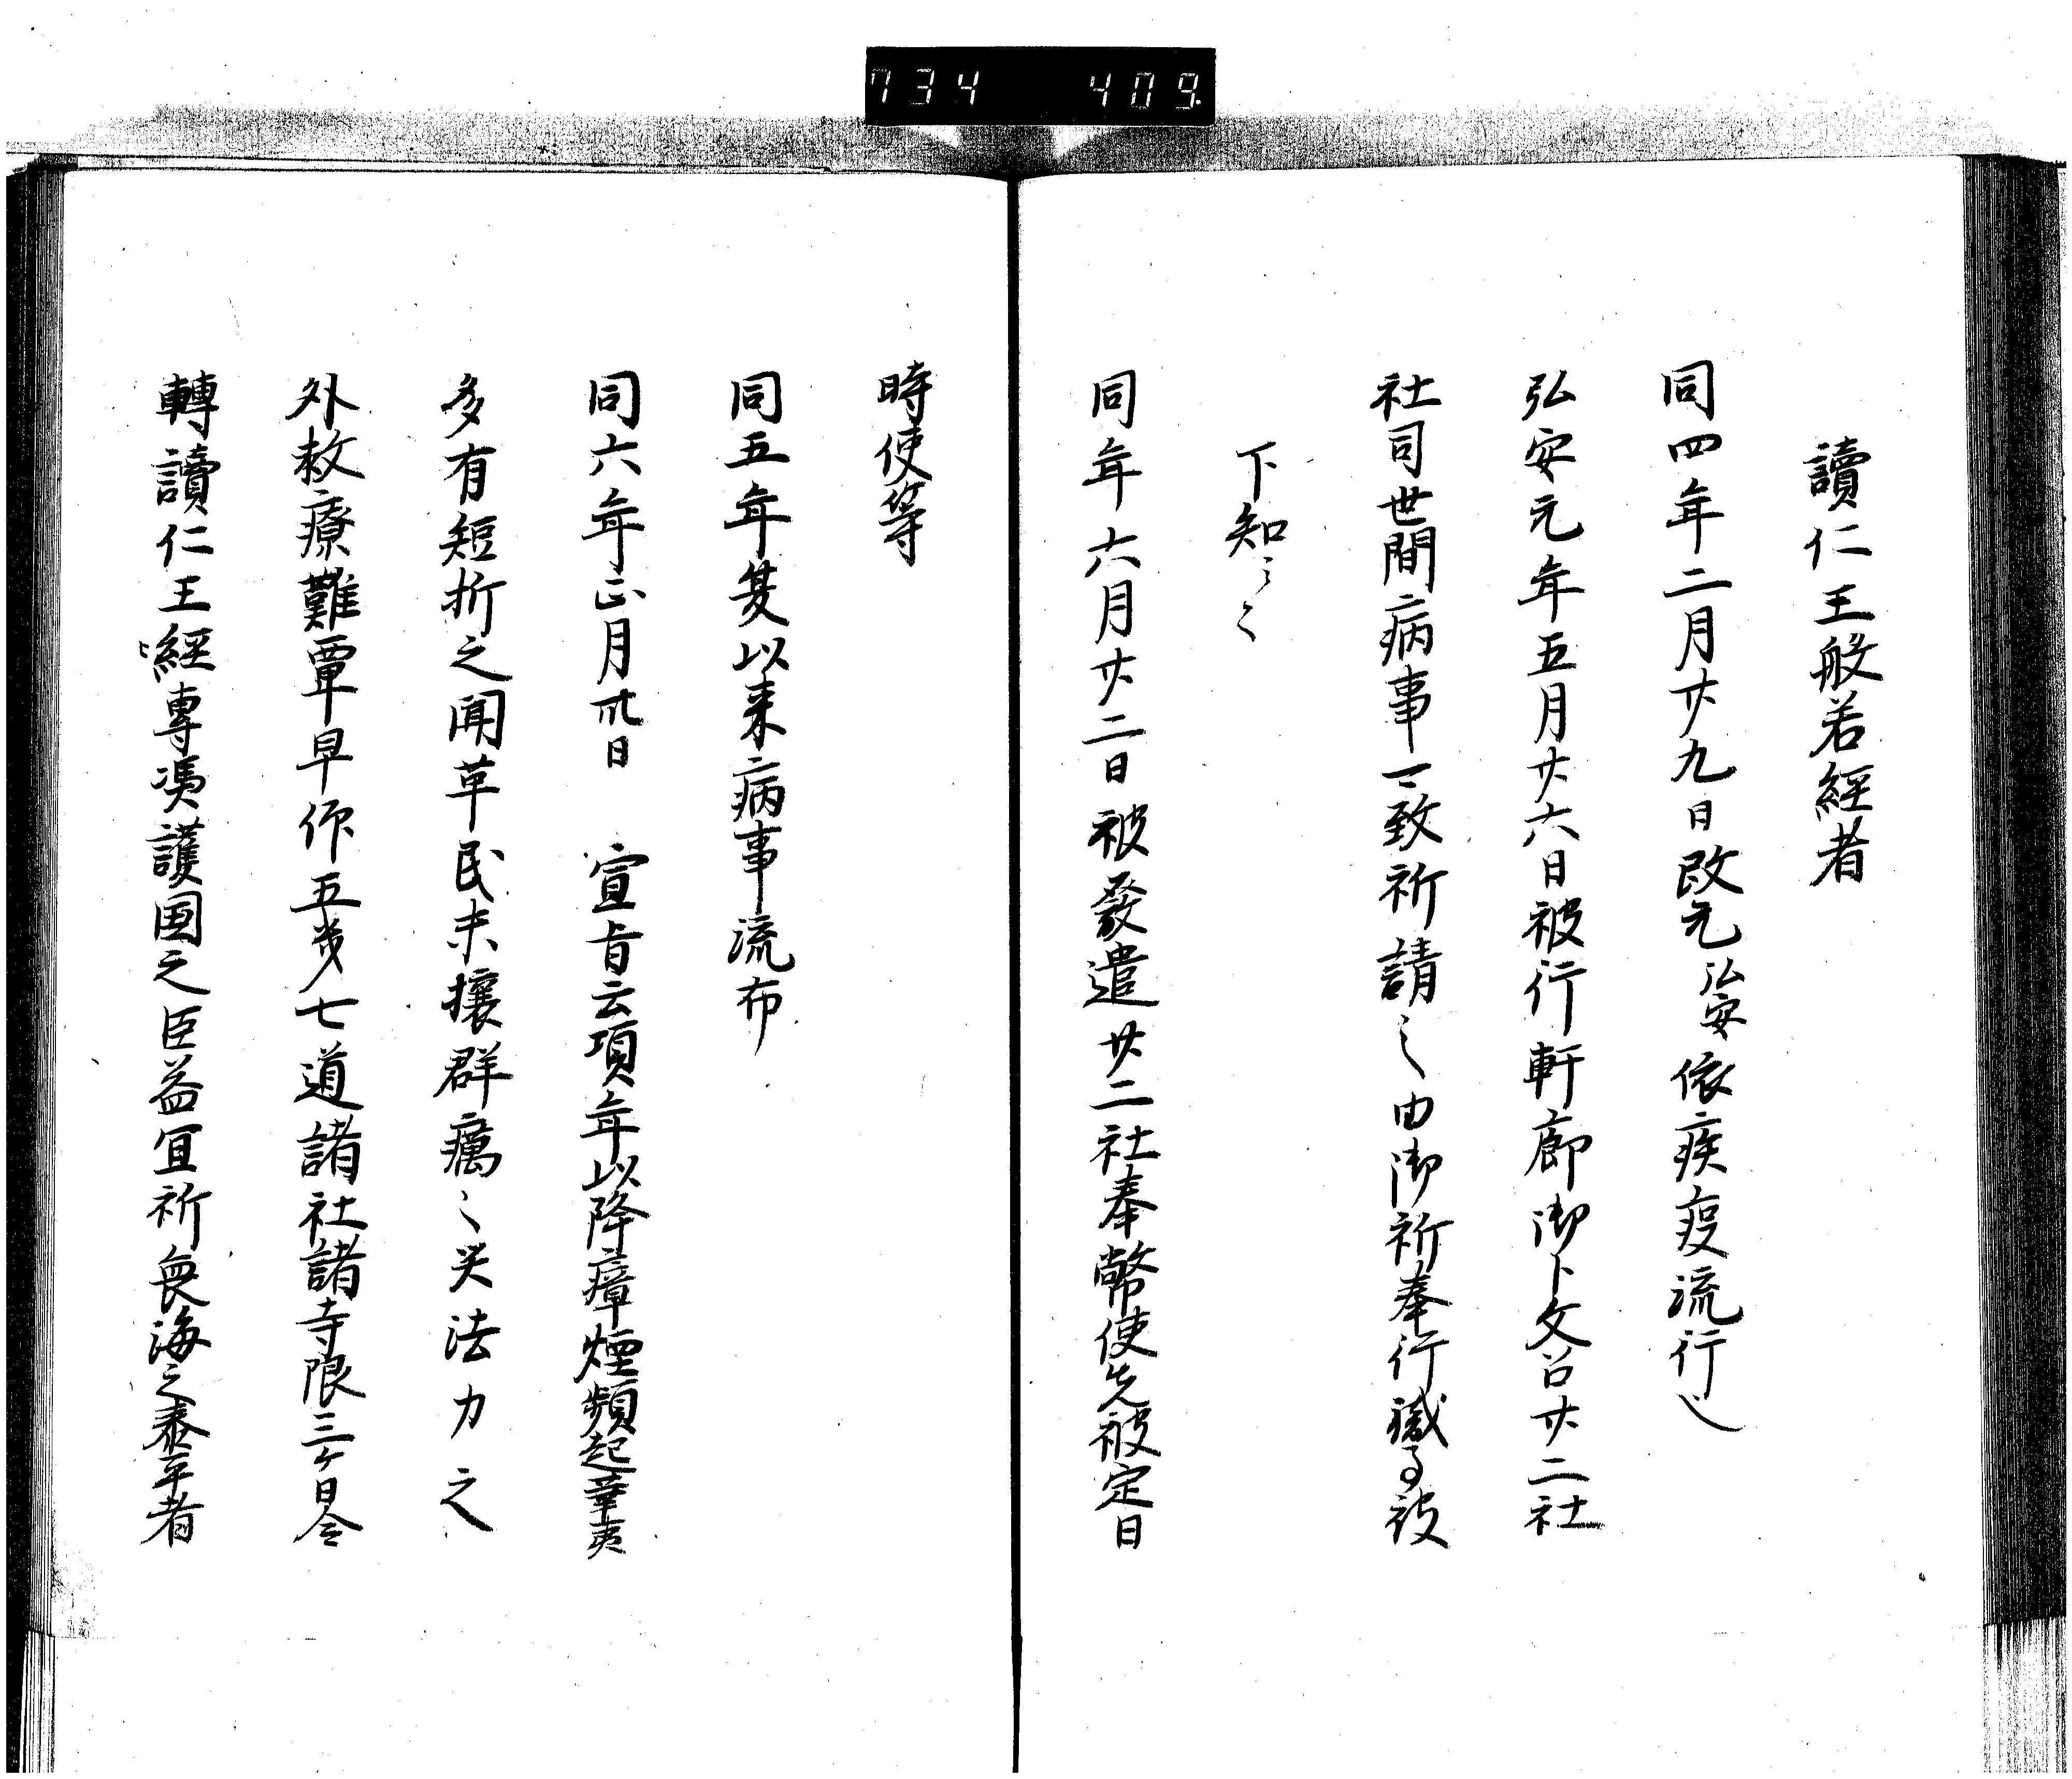 734 409
讀仁王般若經者
同四年二月廿九日改元弘安依疾疫流行也
弘安元年五月廿六日被行軒廊御卜文召廿二社
社司世間病事可致祈請之由御祈奉行職事被
下知云々
同年六月廿二日被發遣廿二社奉幣使先被定日
時使等
同五年冬以来病事流布
同六年正月卅日 宣旨云項年以降瘴煙頻起華夷
多有短折之聞革民未攘群癘之災法力之
外救療難覃早仰五畿七道諸社諸寺限三ケ日令
轉讀仁王經專憑護国之巨益宜祈四海之泰平者